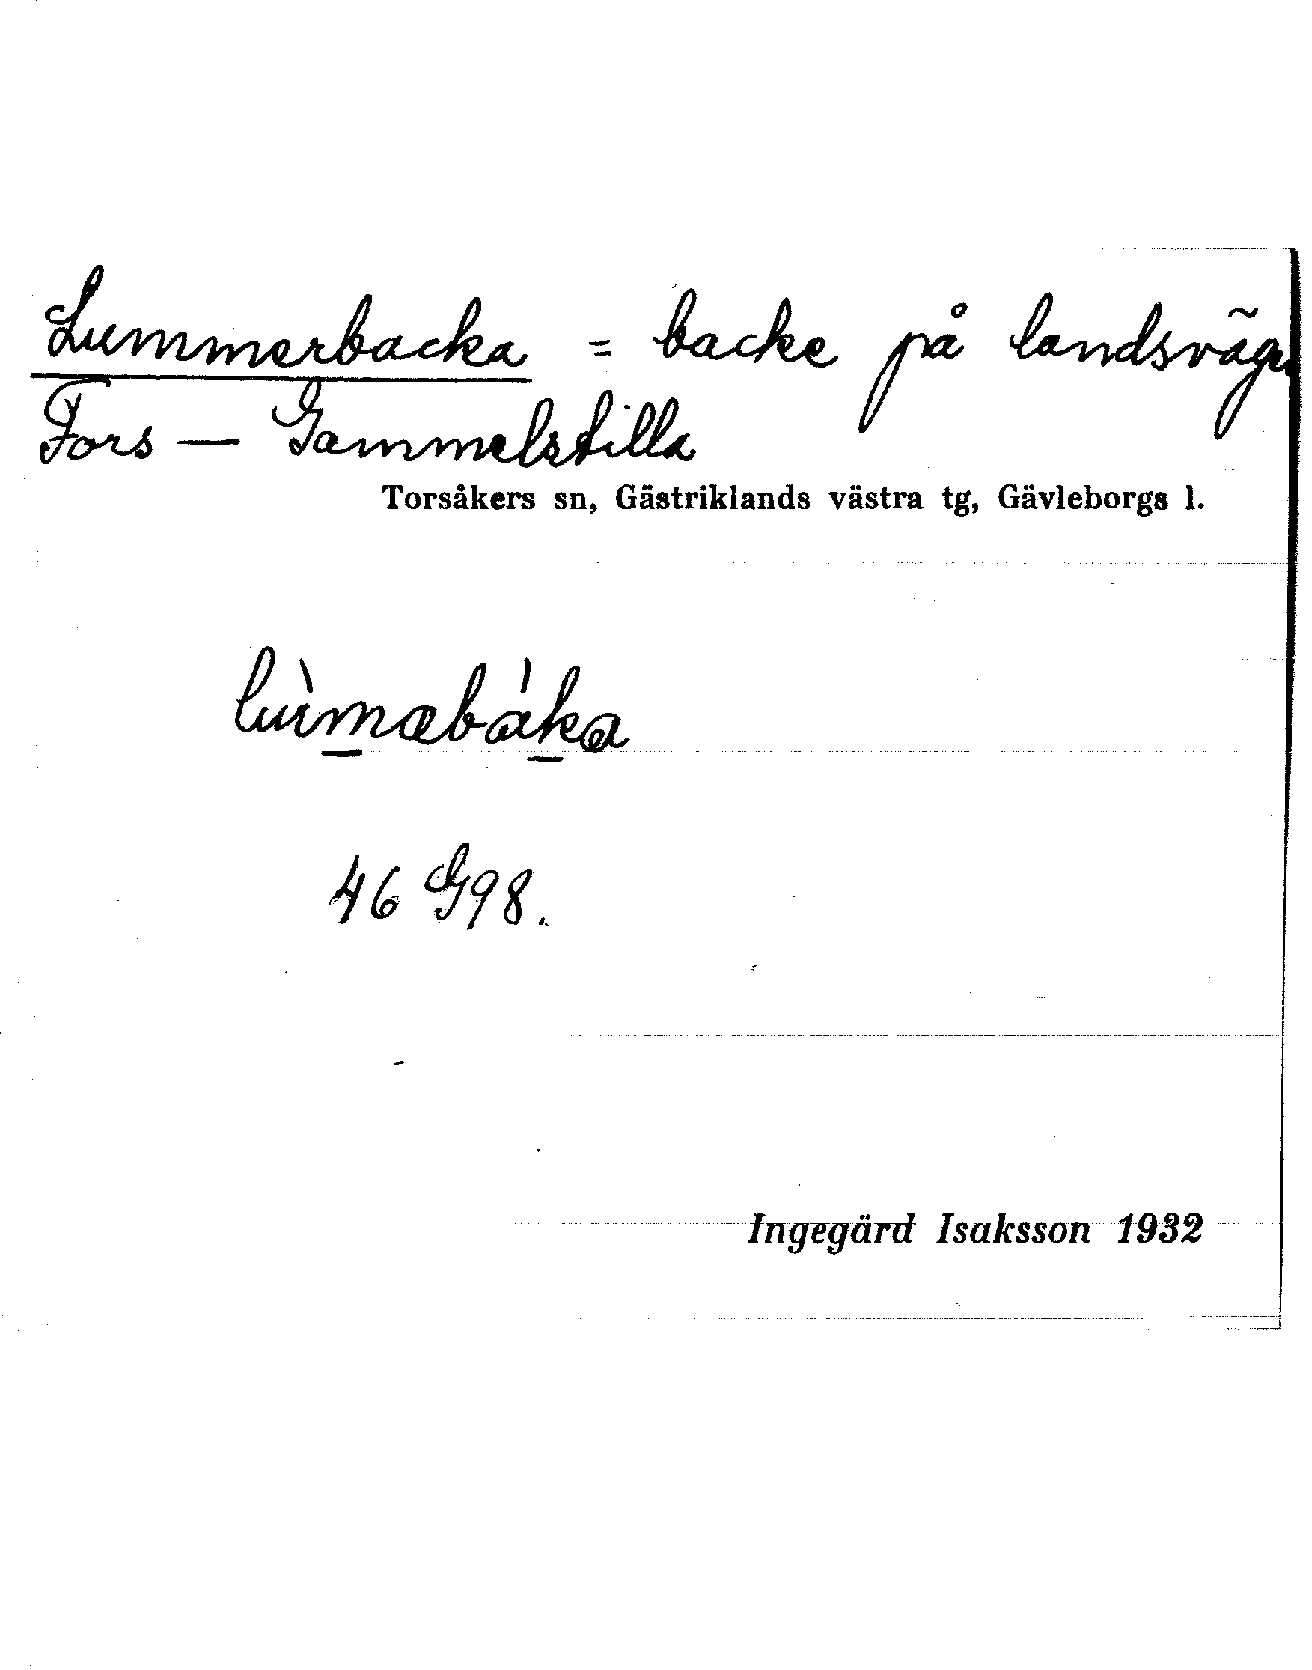 Lummerbacka = backe på landsväge
Fors — Gammelstilla
Torsåkers sn, Gästriklands västra tg, Gävleborgs l.
46 G98.
Ingegärd Isaksson 1932